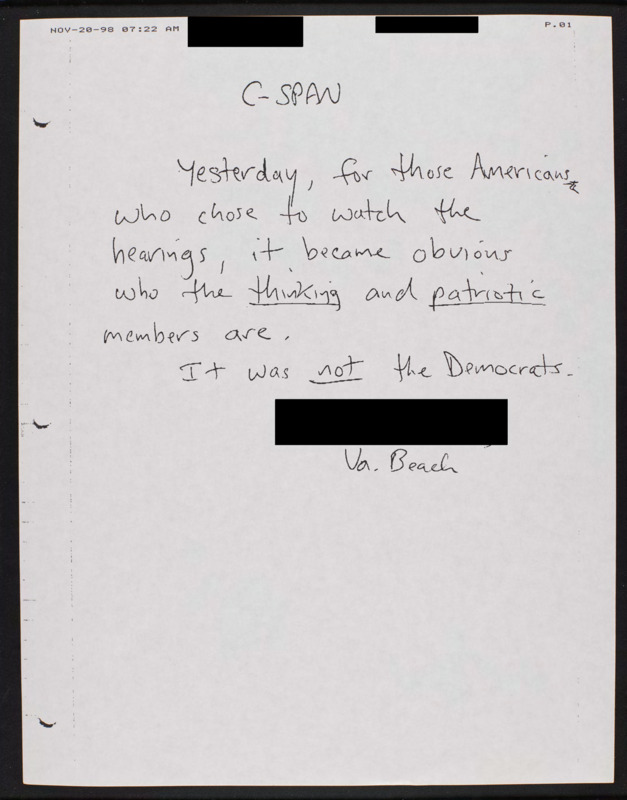 NOV-20-98 07:22 AM P.01
C-SPAN
Yesterday, for those Americans
who chose to watch the
hearings, it became obvious
who the thinking and patriotic
members are.
It was not the Democrats.
Va. Beach